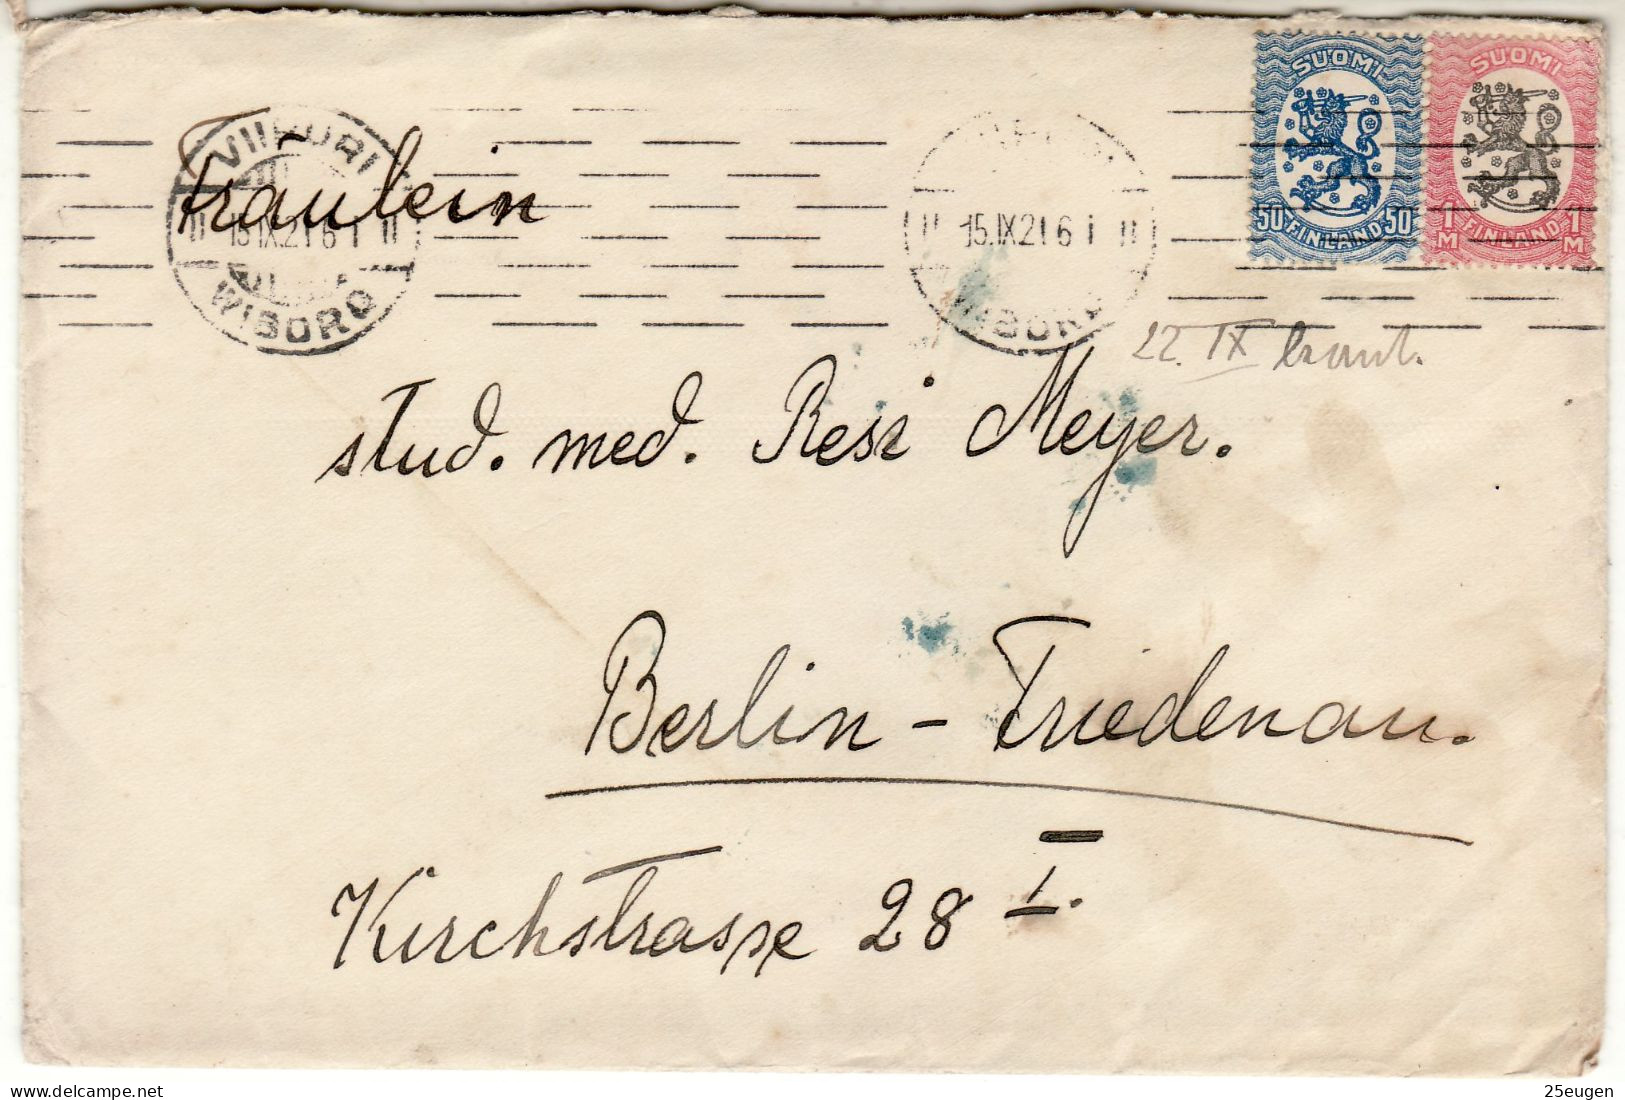 SUOMI SUOMI
50 FINLAND 50
1 M FINLAND 1 M
VIIPURI
15.IX.21 6 I
WIBORG
15.IX.21 6 I
WIBORG
Fräulein
22. IX
stud. med. Resi Meyer.
Berlin-Friedenau.
Kirchstrasse 28 I.
25eugen